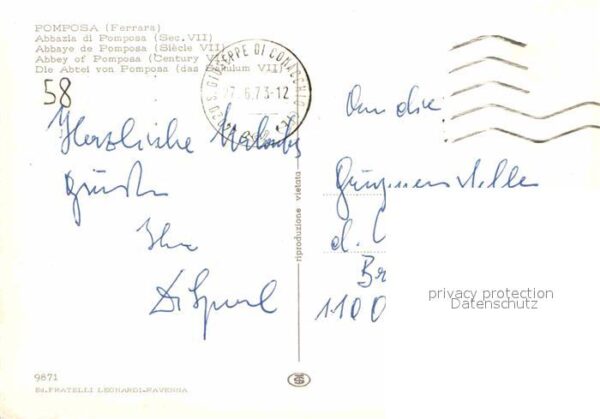 POMPOSA (Ferrara)
Abbazia di Pomposa (Sec. VII)
Abbaye de Pomposa (Siècle VII)
Abbey of Pomposa (Century V
Die Abtei von Pomposa (das Sekulum VII)
S. GIUSEPPE DI COMACCHIO
27.6.73-12
58
Herzliche Urlaubs
grüße
Ihr
An die
d.
Br
1100
riproduzione vietata
privacy protection
Datenschutz
9871
Ed. FRATELLI LEONARDI-RAVENNA